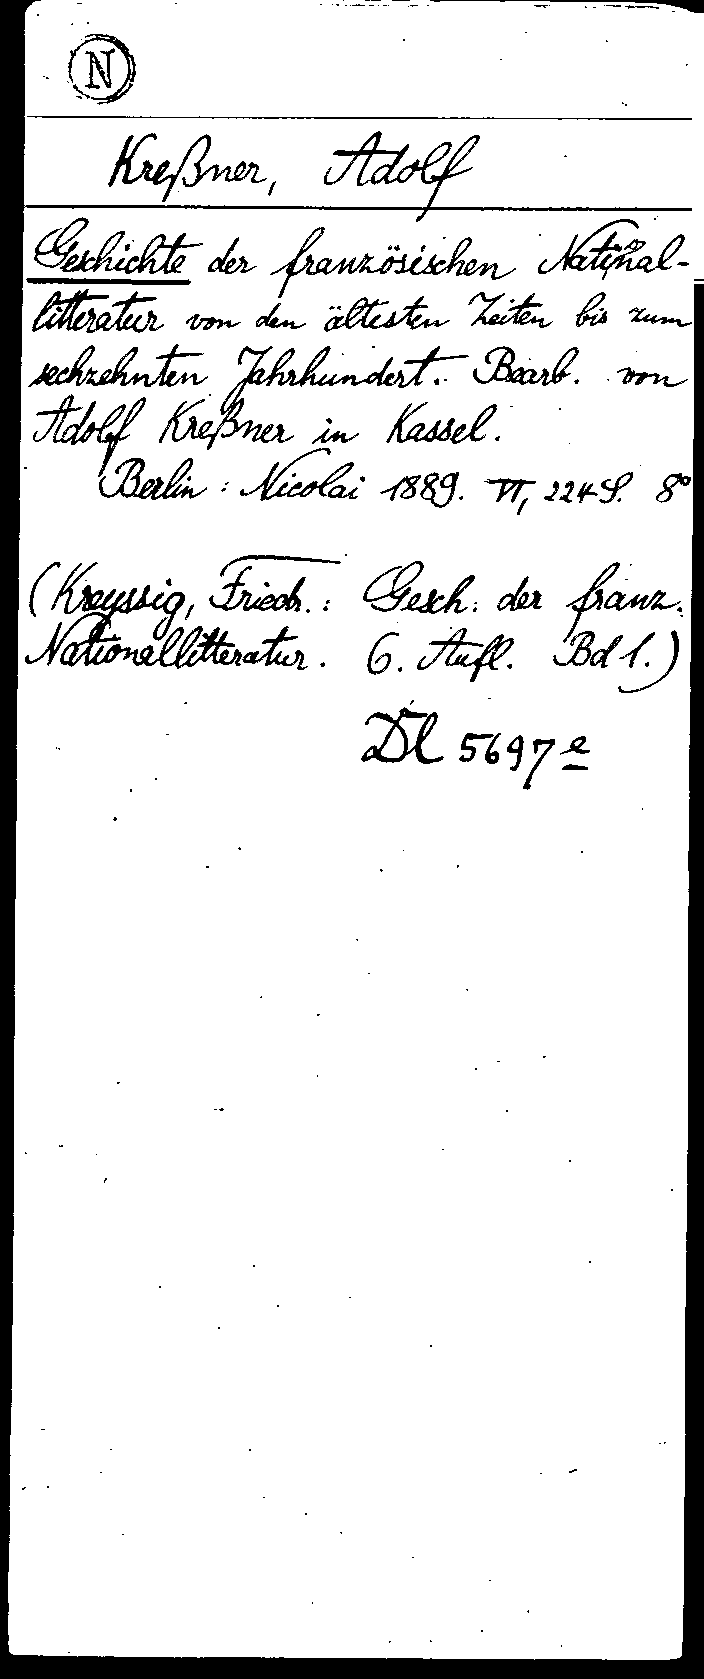 N
Kreßner, Adolf
Geschichte der französischen National-
litteratur von den ältesten Zeiten bis zum
sechzehnten Jahrhundert. Bearb. von
Adolf Kreßner in Kassel.
Berlin: Nicolai 1889. VI, 224 S. 8°
(Kreyssig, Friedr.: Gesch. der franz.
Nationallitteratur. 6. Aufl. Bd 1.)
Dl 5697 e